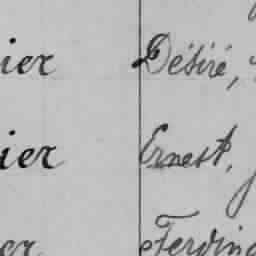 ier Désiré,
ier Ernest,
er Ferdin